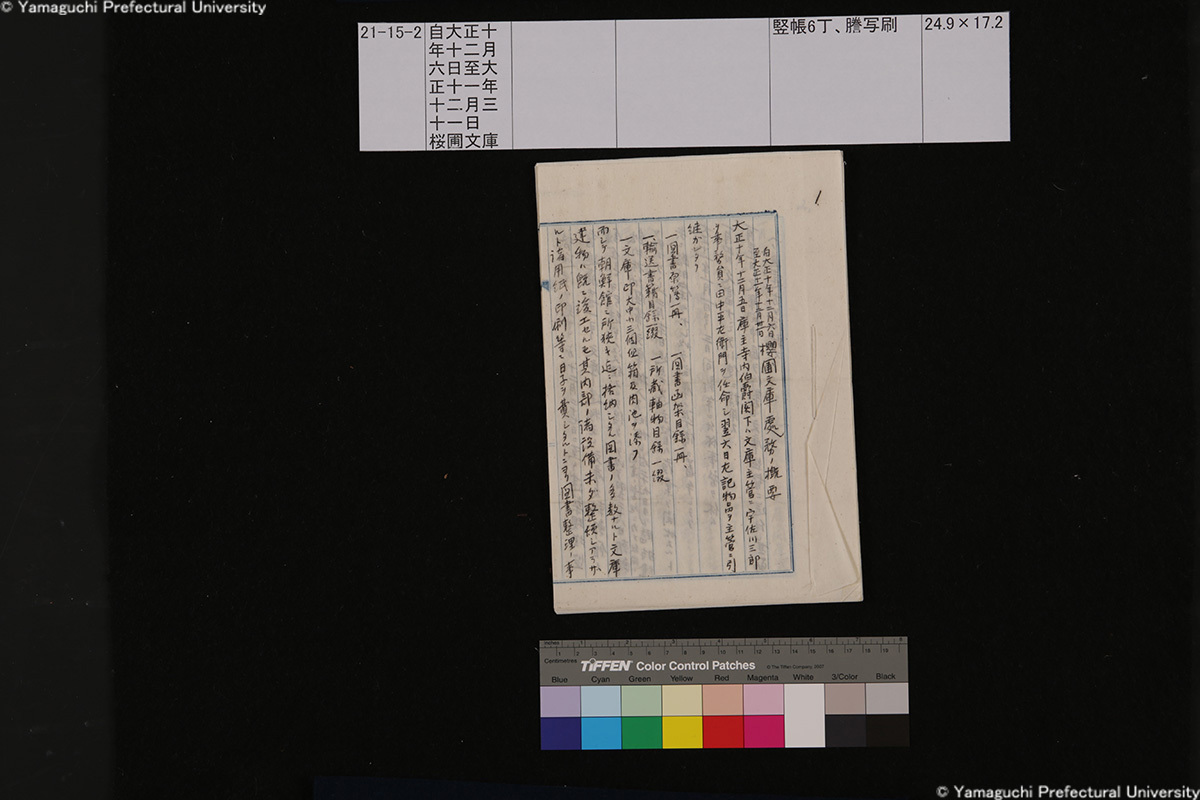 © Yamaguchi Prefectural University
21-15-2
自大正十
年十二月
六日至大
正十一年
十二月三
十一日
桜圃文庫
竪帳6丁、謄写刷
24.9×17.2
1
自大正十年十二月六日
至大正十一年十二月卅一日
櫻圃文庫處務ノ概要
大正十年十二月五日庫主寺内伯爵閣下ハ文庫主管ニ宇佐川三郎
ヲ任命シ翌六日左記物品ヲ主管ニ引
継カレタリ
一圖書原簿一冊、 一圖書函架目録一冊、
一輸送書籍目録一綴 一所蔵軸物目録一綴
一文庫印大中小三個 箱及肉池ヲ添フ
而シテ朝鮮館ニ所狭キ迄格納シタル図書ノ多数ナルト文庫
建物ハ既ニ竣工セルモ其内部ノ諸設備未タ整頓シアラサ
ルト諸用紙ノ印刷等ニ日子ヲ費シタルトニヨリ図書整理ノ事
Inches
Centimetres
TIFFEN Color Control Patches
© The Tiffen Company, 2007
Blue Cyan Green Yellow Red Magenta White 3/Color Black
© Yamaguchi Prefectural University